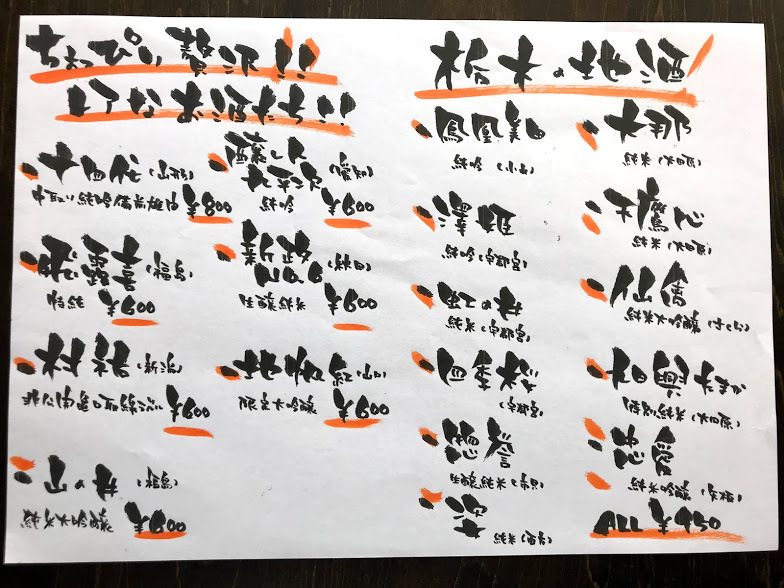 ちょっぴり贅沢!!
レアなお酒たち!!
十四代(山形)
中取り純吟備前雄町
¥800
醸し人
九平次(愛知)
純吟
¥600
飛露喜(福島)
特純
¥600
新政
No.6(秋田)
生酛純米
¥600
村祐(新潟)
¥600
地帆紅(山口)
限定大吟醸
¥600
山の井(福島)
¥600
栃木の地酒!
鳳凰美田
純吟(小山)
澤姫
純吟(宇都宮)
虹の井
純米(宇都宮)
四季桜
(宇都宮)
惣誉
生酛純米(市貝)
姿
純米(西方)
大那
純米(大田原)
天鷹心
純米(大田原)
仙禽
純米大吟醸(さくら)
旭興たまか
(大田原)
忠愛
純米吟醸(矢板)
ALL ¥450